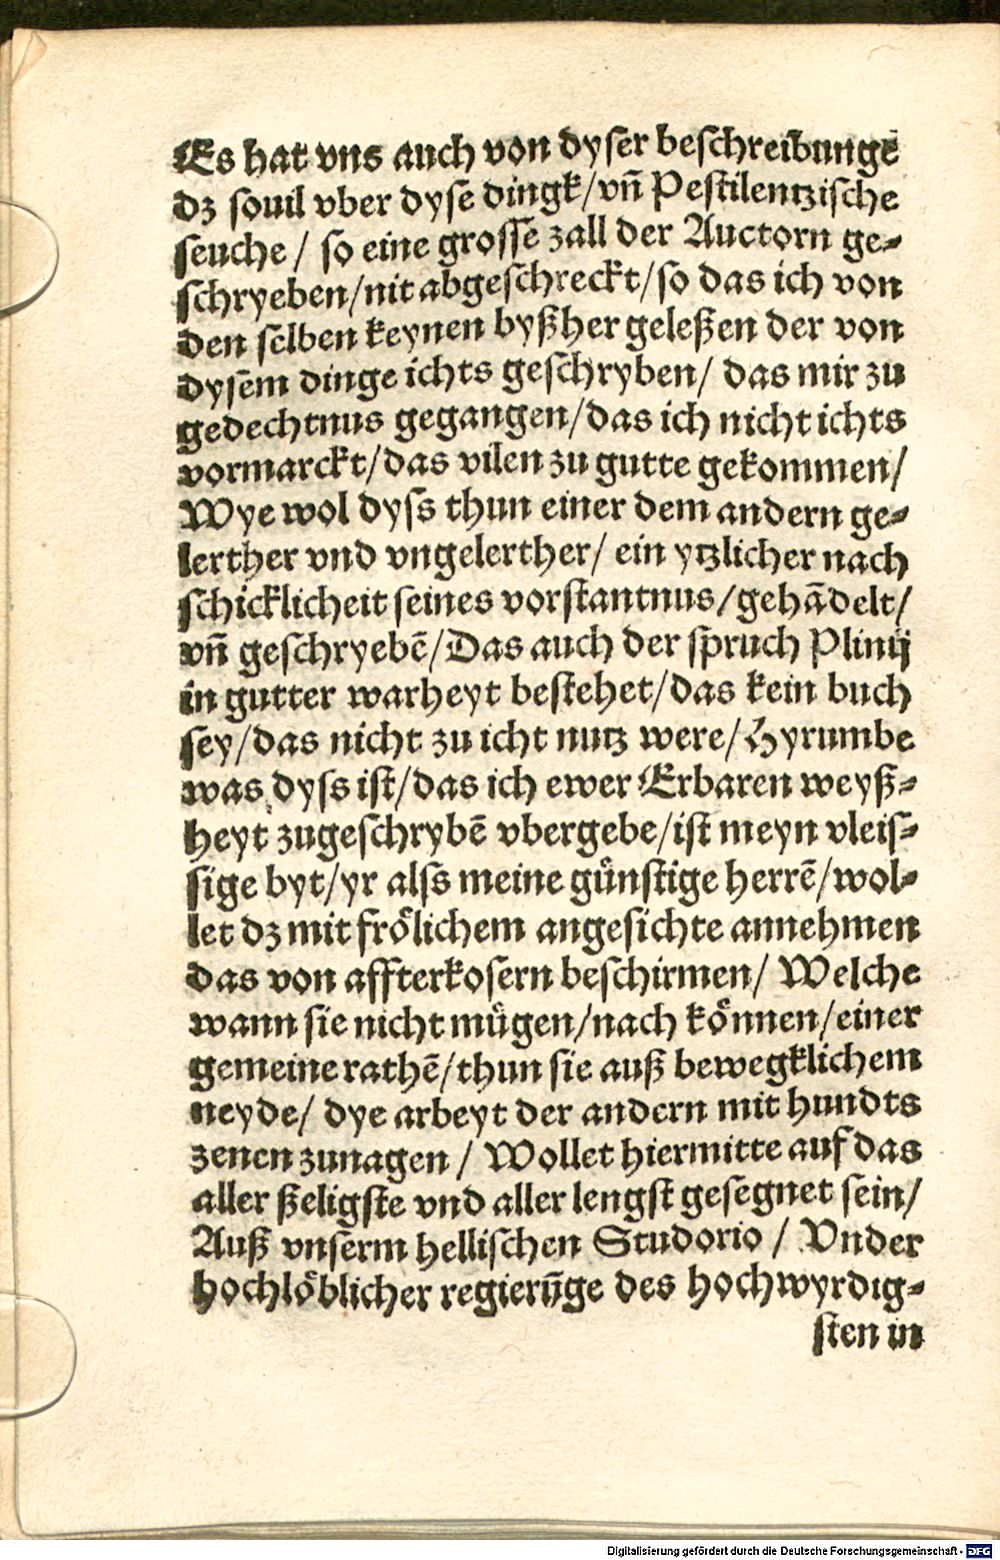 Es hat vns auch von dyser beschreibunge
dz souil vber dyse dingk/vn̄ Pestilentzische
seuche/ so eine grosse zall der Auctorn ge⸗
schryeben/nit abgeschreckt/so das ich von
den selben keynen byßher geleßen der von
dysem dinge ichts geschryben/ das mir zu
gedechtnus gegangen/das ich nicht ichts
vormarckt/das vilen zu gutte gekommen/
Wye wol dyss thun einer dem andern ge⸗
lerther vnd vngelerther/ ein ytzlicher nach
schicklicheit seines vorstantnus/gehādelt/
vn̄ geschryebē/Das auch der spruch Plinij
in gutter warheyt bestehet/das kein buch
sey/das nicht zu icht nutz were/Hyrumbe
was dyss ist/das ich ewer Erbaren weyß⸗
heyt zugeschrybē vbergebe/ist meyn vleis⸗
sige byt/yr alss meine günstige herrē/wol⸗
let dz mit frölichem angesichte annehmen
das von affterkosern beschirmen/ Welche
wann sie nicht mügen/nach können/einer
gemeine rathē/thun sie auß bewegklichem
neyde/ dye arbeyt der andern mit hundts
zenen zunagen/ Wollet hiermitte auf das
aller ßeligste vnd aller lengst gesegnet sein/
Auß vnserm hellischen Studorio/ Vnder
hochlöblicher regierūge des hochwyrdig⸗
sten in
Digitalisierung gefördert durch die Deutsche Forschungsgemeinschaft - DFG